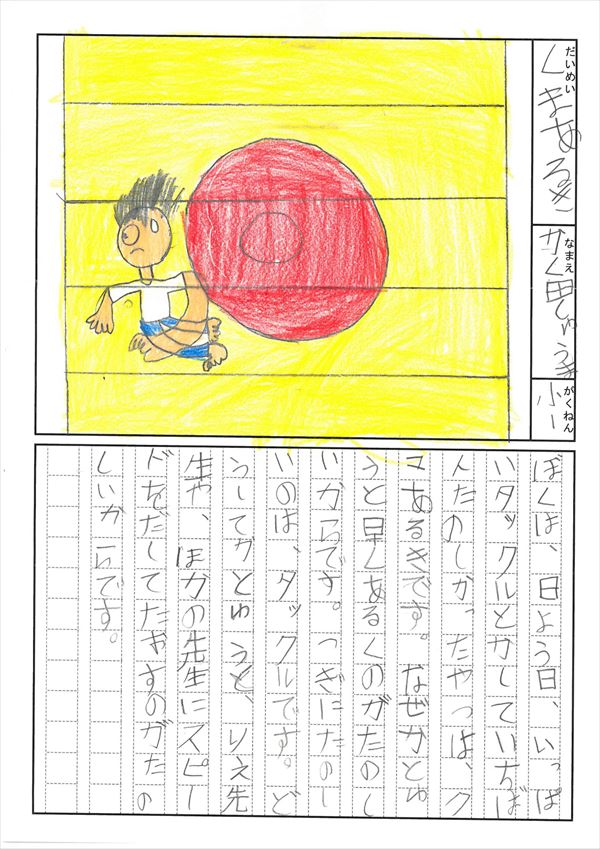 だいめい
くまあるき
なまえ
がくねん
小一
ぼくは、日よう日、いっぱ
いタックルとかしていちば
んたのしかったやつは、ク
マあるきです。なぜかとゆ
うと早くあるくのがたのし
いからです。つぎにたのし
いのは、タックルです。ど
うしてかとゆうと、りえ先
生や、ほかの先生にスピー
ドをだしてたおすのがたの
しいからです。